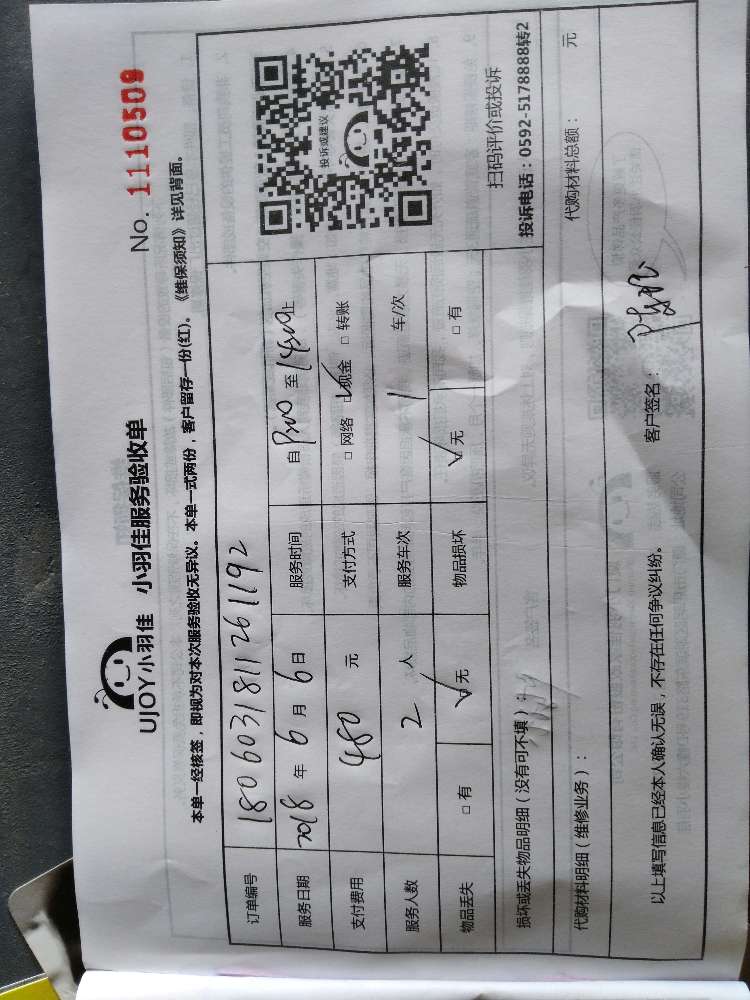 UJOY小羽佳 小羽佳服务验收单 No. 1110509
本单一经核签，即视为对本次服务验收无异议。本单一式两份，客户留存一份(红)。《维保须知》详见背面。
订单编号 180603181126 1192
服务日期 2018 年 6 月 6 日 服务时间 自 至 止
支付费用 480 元 支付方式 □ 网络 ☑ 现金 □ 转账
服务人数 2 人 服务车次 1 车/次
物品丢失 □ 有 ☑ 无 物品损坏 ☑ 无 □ 有
投诉或建议
扫码评价或投诉
投诉电话：0592-5178888转2
损坏或丢失物品明细（没有可不填）：
代购材料明细（维修业务）： 代购材料总额： 元
以上填写信息已经本人确认无误，不存在任何争议纠纷。 客户签名：